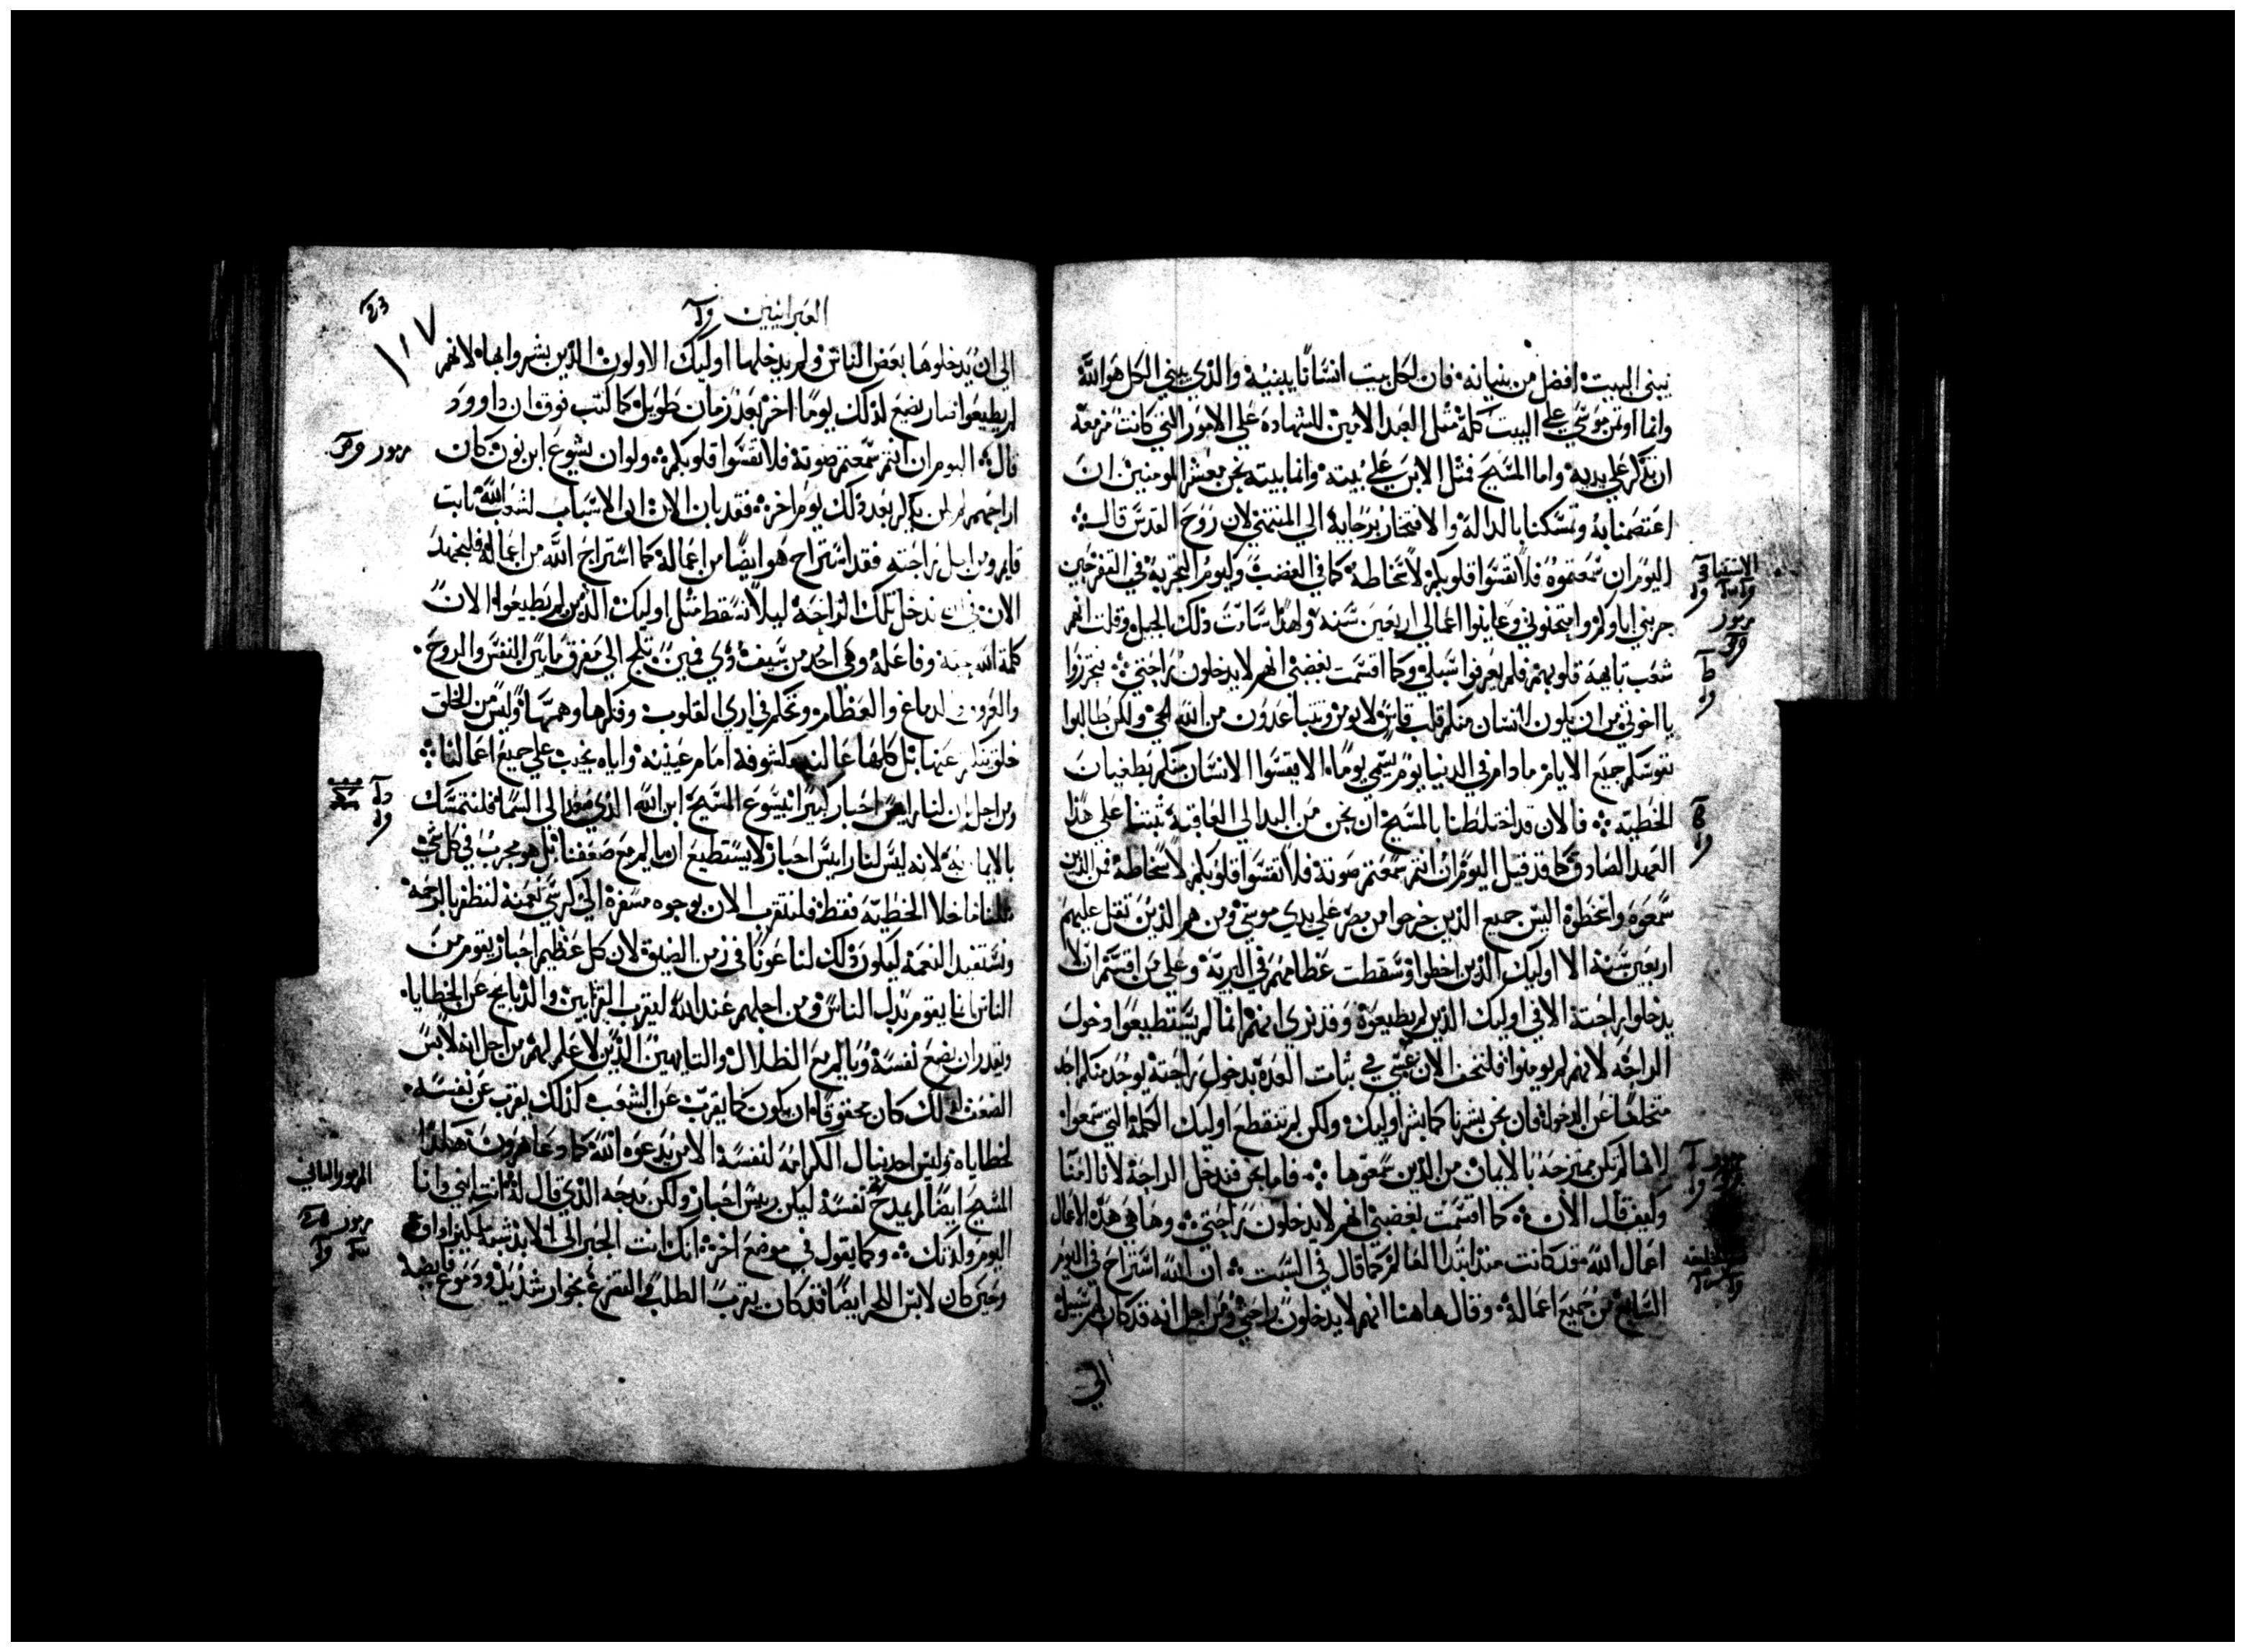 يبنى البيت افضل من بنيانه فان لكل بيت انسانا يبنيه والذي يبني الكل هو الله
وانما اوتمن موسي علي البيت كله مثل العبد الامين للشهادة علي الامور التي كانت مزمعه
ان تذكر علي يديه واما المسيح فمثل الابن علي بيته وانما بيته نحن معشر المومنين ان
اعتصمنا به وتمسكنا بالدالة والافتخار برجايه الي المنتهي لان روح القدس قال
اليوم ان سمعتموه فلا تقسوا قلوبكم لاسخاطه كما في الغضب وكيوم التجربه في القفر حين
جربني اباوكم وامتحنوني وعاينوا اعمالي اربعين سنه ولهذا سامت ذلك الجيل وقلت انهم
شعب تايهة قلوبهم فلم يعرفوا سبلي وكما اقسمت بغضبي انهم لا يدخلون راحتي فتحرزوا
يا اخوتي من ان يكون لانسان منكم قلب قاس لا يومن وتتباعدون من الله الحي ولكن طالبوا
نفوسكم جميع الايام ما دام في الدنيا يوم يسمي يوما الا يقسوا الانسان منكم بطغيان
الخطيه فالان قد اختلطنا بالمسيح ان نحن من البدا الي العاقبة ثبتنا علي هذا
العهد الصادق كما قد قيل اليوم ان انتم سمعتم صوته فلا تقسوا قلوبكم لاسخاطه فمن الذين
سمعوه واسخطوه اليس جميع الذين خرجوا من مصر علي يدي موسي ومن هم الذين ثقل عليهم
اربعين سنة الا اوليك الذين اخطوا وسقطت عظامهم في البرية وعلي من اقسم ان لا
يدخلوا راحته الا في اوليك الذين لم يطيعوه وقد نري انهم انما لم يستطيعوا دخول
الراحه لانهم لم يومنوا فلنخف الان عسي في ثبات العدة بدخول راحته يوجد منكم احد
متخلفا عن الدخول فان نحن بشرنا كما بشر اوليك ولكن لم تنفع اوليك الكلمة التي سمعوا
لانها لم تكن ممتزجه بالايمان من الذين سمعوها فاما نحن فندخل الراحة لانا امنا
وكيف قال الان كما اقسمت بغضبي انهم لا يدخلون راحتي وها هي هذه الاعمال
اعمال الله قد كانت منذ ابتدا العالم كما قال في السبت ان الله استراح في اليوم
السابع من جميع اعماله وقال هاهنا انهم لا يدخلون راحتي ومن اجل انه قد كان لهم سبيل
الي
الاستثنا
مزمور
العبرانيين
١١٧
الي ان يدخلوها بعض الناس ولم يدخلها اوليك الاولون الذين بشروا بها لانهم
لم يطيعوا صار يضع لذلك يوما اخر بعد زمان طويل كما كتب فوق ان داوود
قال اليوم ان انتم سمعتم صوته فلا تقسوا قلوبكم ولو ان يشوع ابن نون كان
اراحهم لم يكن يذكر بعد ذلك يوم اخر فقد بان الان ان الاسبات لشعب الله ثابت
قايم ومن دخل راحته فقد استراح هو ايضا من اعماله كما استراح الله من اعماله فلنجتهد
الان في ان ندخل تلك الراحة ليلا نسقط مثل اوليك الذين لم يطيعوا لان
كلمة الله حية وفاعلة وهي احد من سيف ذي فمين تلج الي مفرق ما بين النفس والروح
والعروق والدماغ والعظام وتحكم في اري القلوب وفكرها وهمها وليس من الخلق
خلق يتكتم عنها بل كلها عالنه مكشوفة امام عينيه واياه نجيب علي جميع اعمالنا
ومن اجل ان لنا رايس احبار كبيرا يسوع المسيح ابن الله الذي صعد الي السما فلنتمسك
بالايمان به لانه ليس لنا رايس احبار لا يستطيع ان يالم مع ضعفنا بل هو مجرب في كل شي
مثلنا ما خلا الخطية فقط فلنتقرب الان بوجوه مسفرة الي كرسي نعمته لنظفر بالرحمة
ونستفيد النعمة ليكون ذلك لنا عونا في زمن الضيق لان كل عظيم احبار يقوم من
الناس انما يقوم بدل الناس ومن اجلهم عند الله ليقرب القرابين والذبايح عن الخطايا
ويقدر ان يضع نفسه ويالم مع الضلال والتايهين الذين لا علم لهم من اجل انه لابس
الضعف لذلك كان محقوقا ان يكون كما يقرب عن الشعب كذلك يقرب عن نفسه
لخطاياه وليس احد ينال الكرامه لنفسه الا من يدعوه الله كما دعا هرون هكذا
المسيح ايضا لم يمدح نفسه ليكن رييس احبار ولكن مدحه الذي قال له انت ابني وانا
اليوم ولدتك وكما يقول في موضع اخر انك انت الحبر الي الابد شبه ملكيزاداق
وحين كان لابس اللحم ايضا قد كان يقرب الطلب والتضرع بخوار شديد ودموع فايضه
مزمور
المزمور الثاني
مزمور